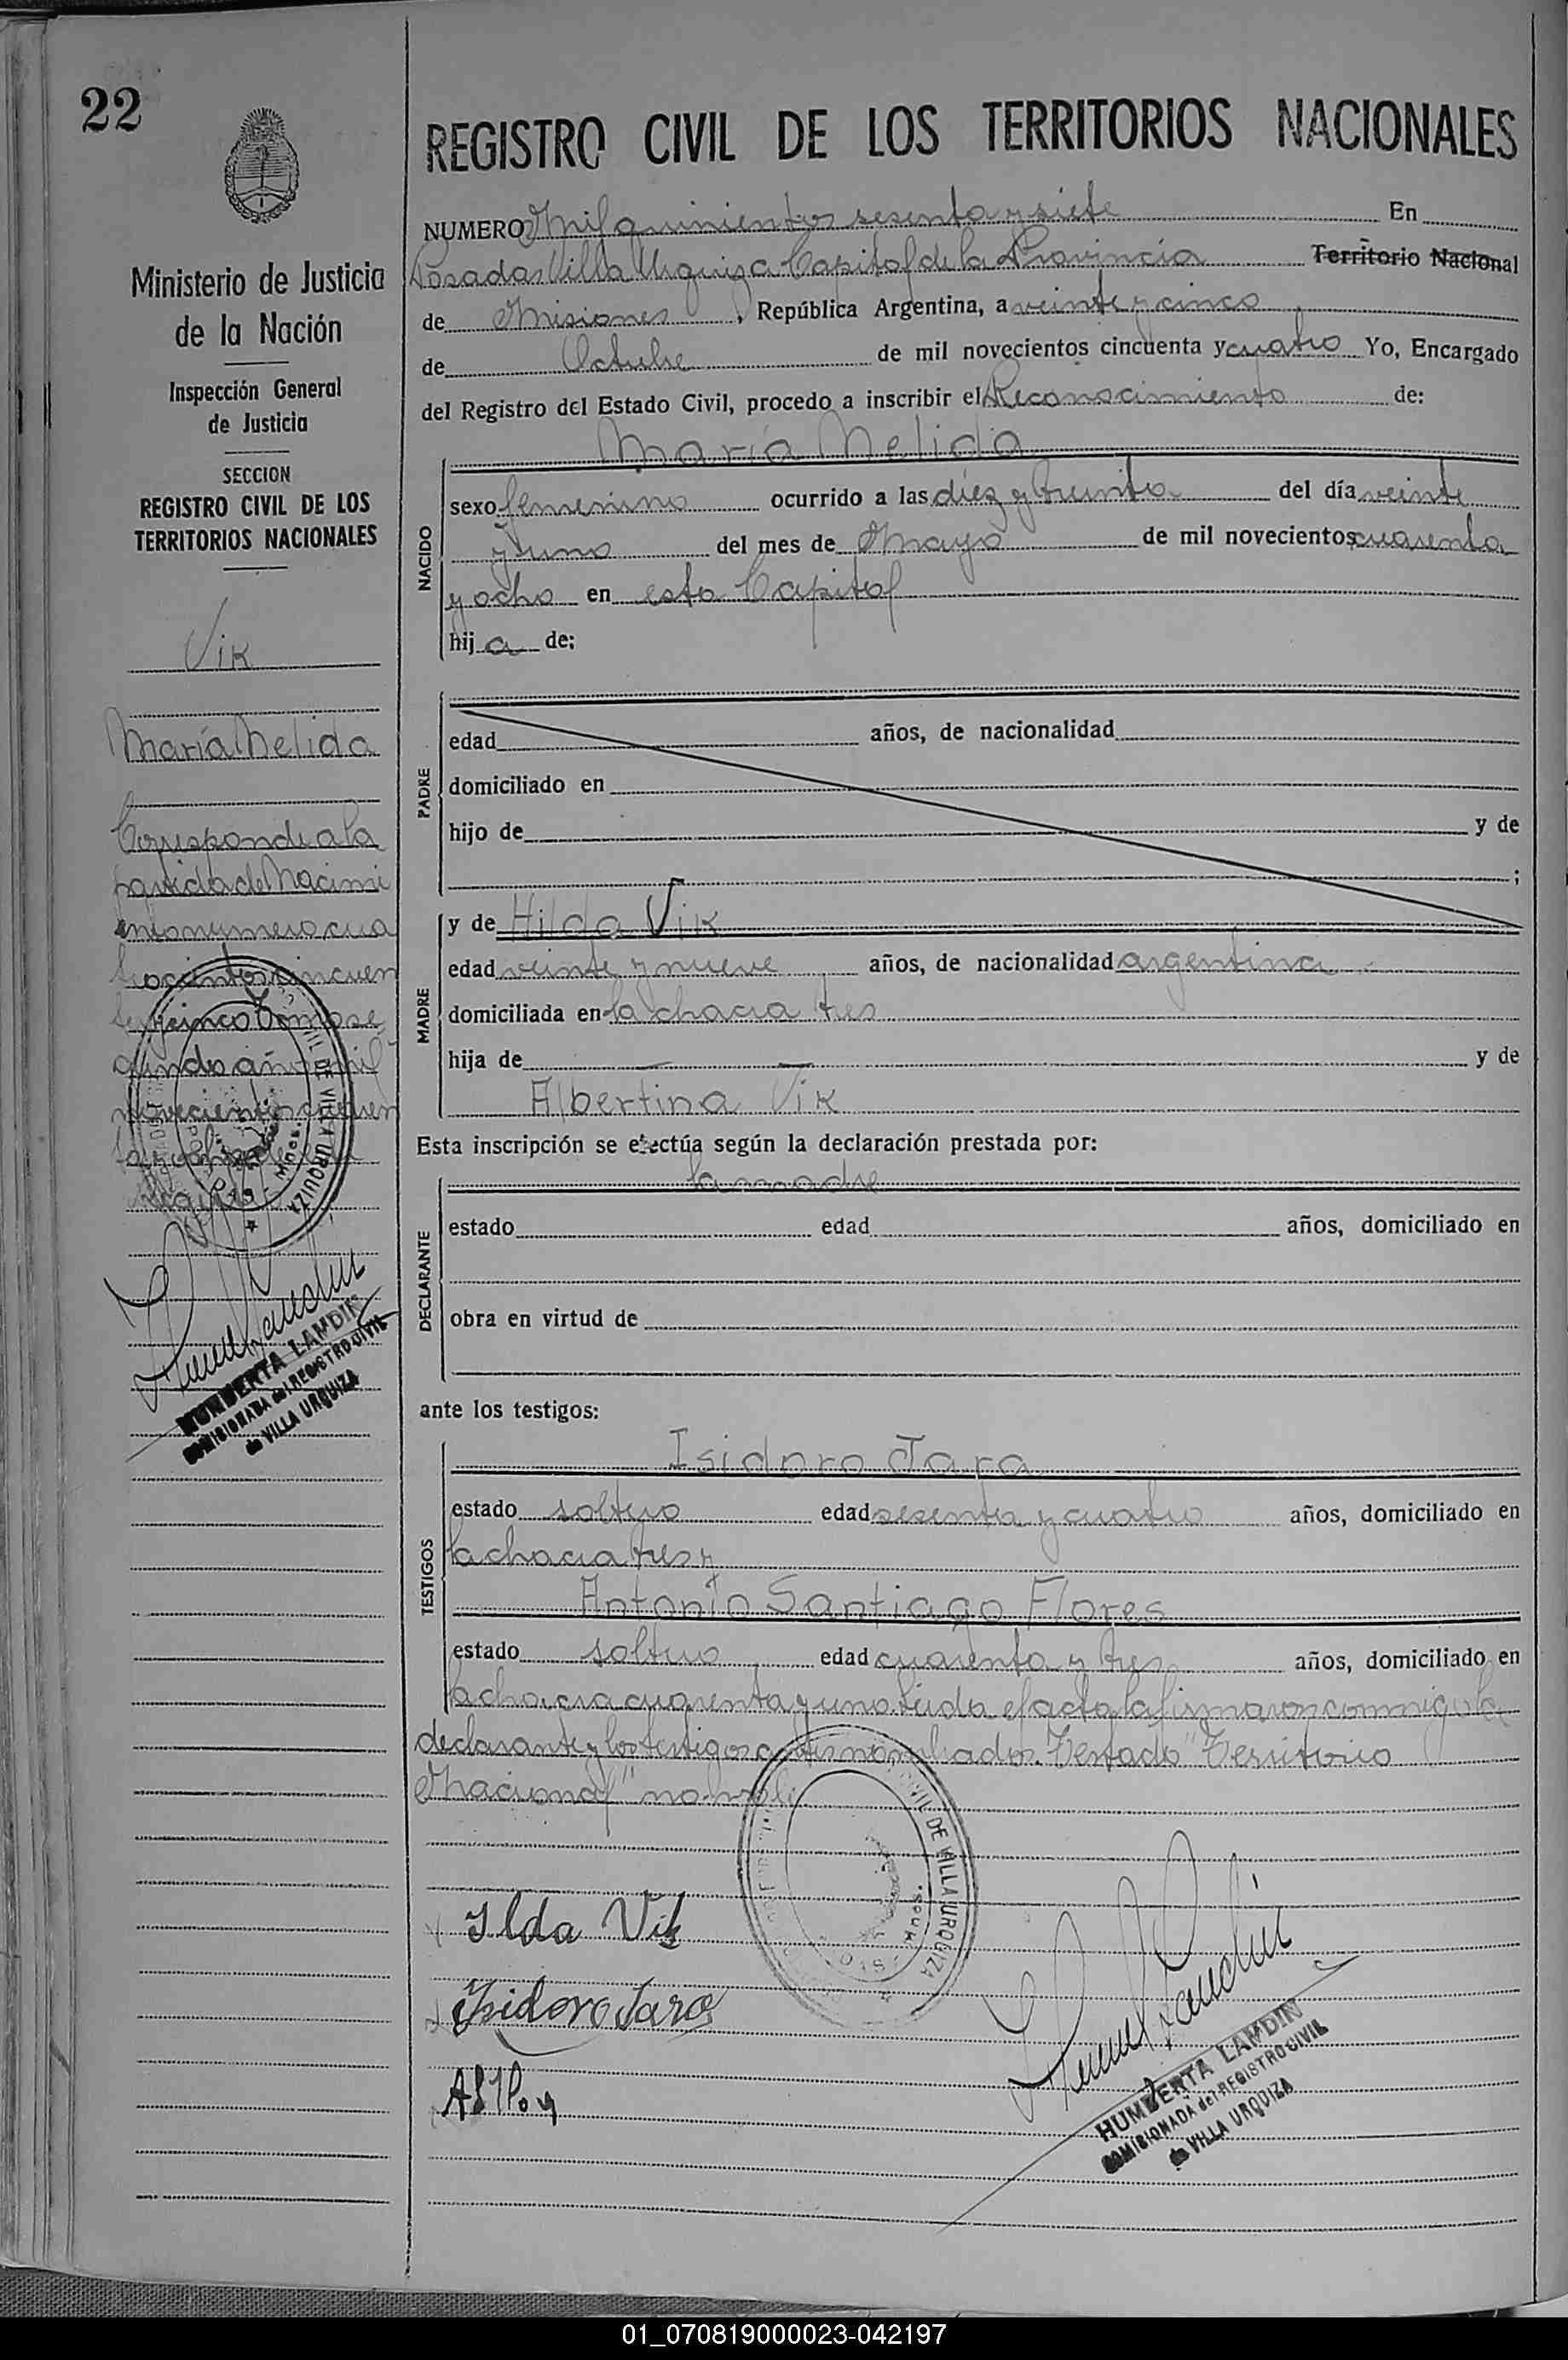 22
Ministerio de Justicia
de la Nación
Inspección General
de Justicia
SECCION
REGISTRO CIVIL DE LOS
TERRITORIOS NACIONALES
Vik
María Nelida
Corresponde a la
partida de Nacimi
ento numero cua
trocientos cincuen
ta y cinco Tomo se
gundo año mil
novecientos cuaren
ta y ocho
HUMBERTA LANDIN
COMISIONADA del REGISTRO CIVIL
de VILLA URQUIZA
REGISTRO CIVIL DE LOS TERRITORIOS NACIONALES
NUMERO Mil quinientos sesenta y siete En
Posadas Villa Urquiza Capital de la Provincia Territorio Nacional
de Misiones, República Argentina, a veinte y cinco
de Octubre de mil novecientos cincuenta y cuatro Yo, Encargado
del Registro del Estado Civil, procedo a inscribir el Reconocimiento de:
María Nelida
NACIDO
sexo femenino ocurrido a las diez y treinta del día veinte
y uno del mes de Mayo de mil novecientos cuarenta
y ocho en esta Capital
hija de:
PADRE
edad años, de nacionalidad
domiciliado en
hijo de y de
;
MADRE
y de Hilda Vik
edad veinte y nueve años, de nacionalidad argentina
domiciliada en la chacra tres
hija de y de
Albertina Vik
Esta inscripción se efectúa según la declaración prestada por:
la madre
DECLARANTE
estado edad años, domiciliado en
obra en virtud de
ante los testigos:
TESTIGOS
Isidoro Jara
estado soltero edad sesenta y cuatro años, domiciliado en
la chacra tres y
Antonio Santiago Flores
estado soltero edad cuarenta y tres años, domiciliado en
la chacra cuarenta y uno. Leida el acta la firmaron conmigo la
declarante y los testigos antes nombrados. Testado "Territorio
Nacional" no vale
CIVIL DE VILLA URQUIZA
Ilda Vik
Isidoro Jara
HUMBERTA LANDIN
COMISIONADA del REGISTRO CIVIL
de VILLA URQUIZA
01_070819000023-042197